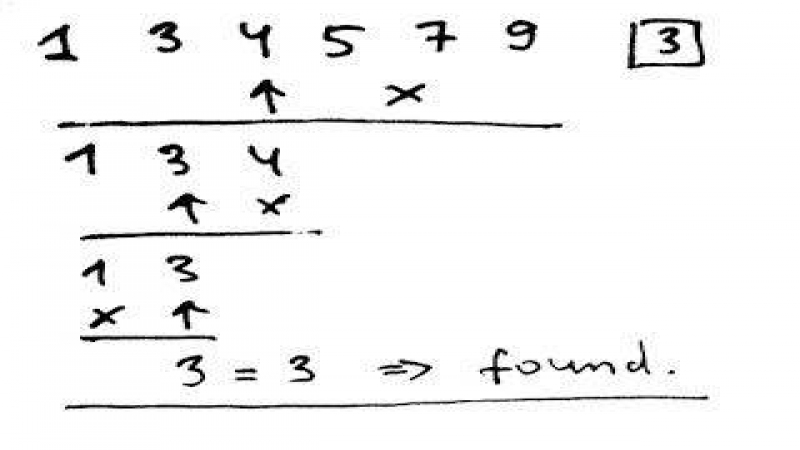 1 3 4 5 7 9 3
↑ ×
1 3 4
↑ ×
1 3
× ↑
3 = 3 => found.